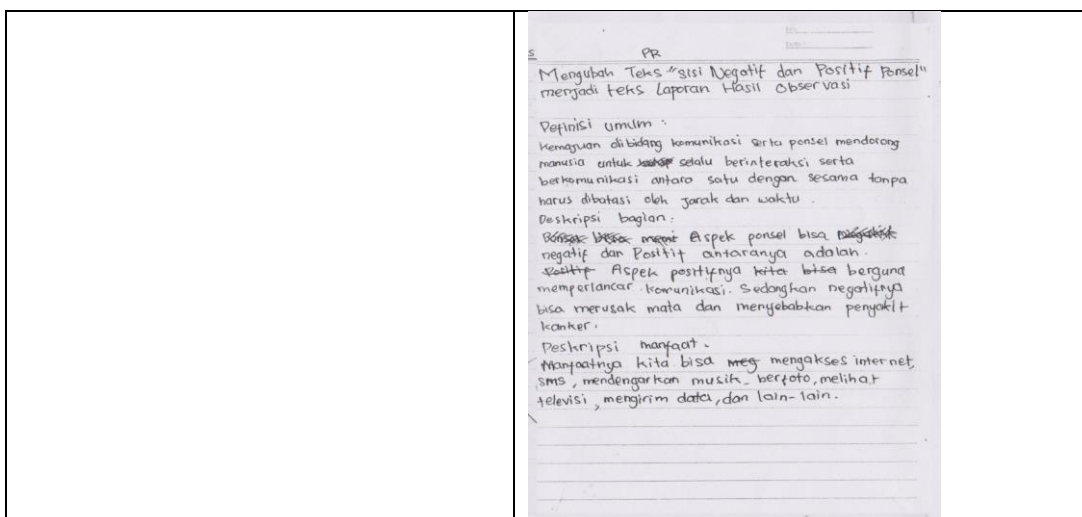 PR
Mengubah Teks "Sisi Negatif dan Positif Ponsel"
menjadi teks Laporan Hasil Observasi
Definisi umum :
Kemajuan dibidang komunikasi serta ponsel mendorong
manusia untuk selalu berinteraksi serta
berkomunikasi antara satu dengan sesama tanpa
harus dibatasi oleh jarak dan waktu .
Deskripsi bagian :
Aspek ponsel bisa
negatif dan Positif antaranya adalah .
Positif Aspek positifnya kita bisa berguna
memperlancar komunikasi. Sedangkan negatifnya
bisa merusak mata dan menyebabkan penyakit
kanker .
Deskripsi manfaat .
Manfaatnya kita bisa meg mengakses internet,
sms , mendengarkan musik, berfoto, melihat
televisi , mengirim data, dan lain-lain .